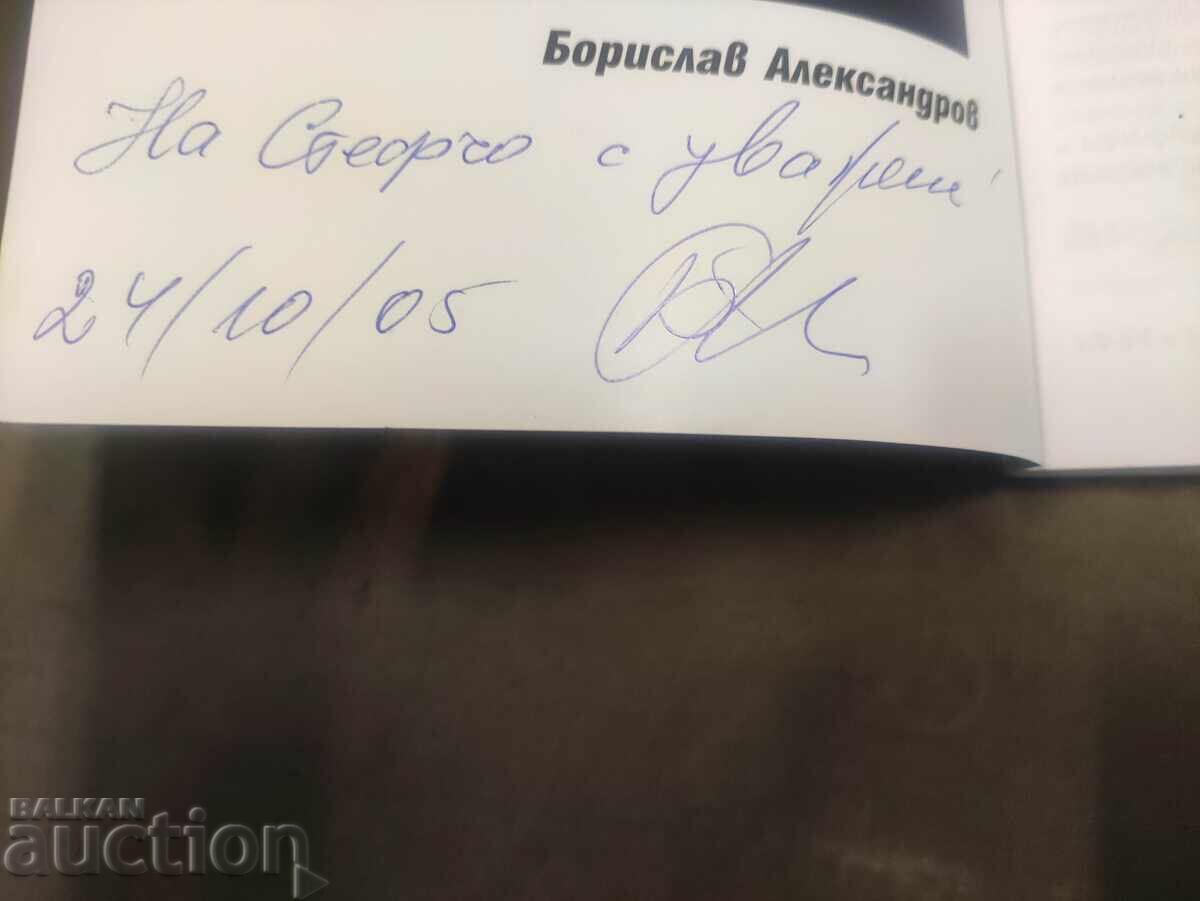 Борислав Александров
На Стефчо с уважени
24/10/05
BALKAN
auction